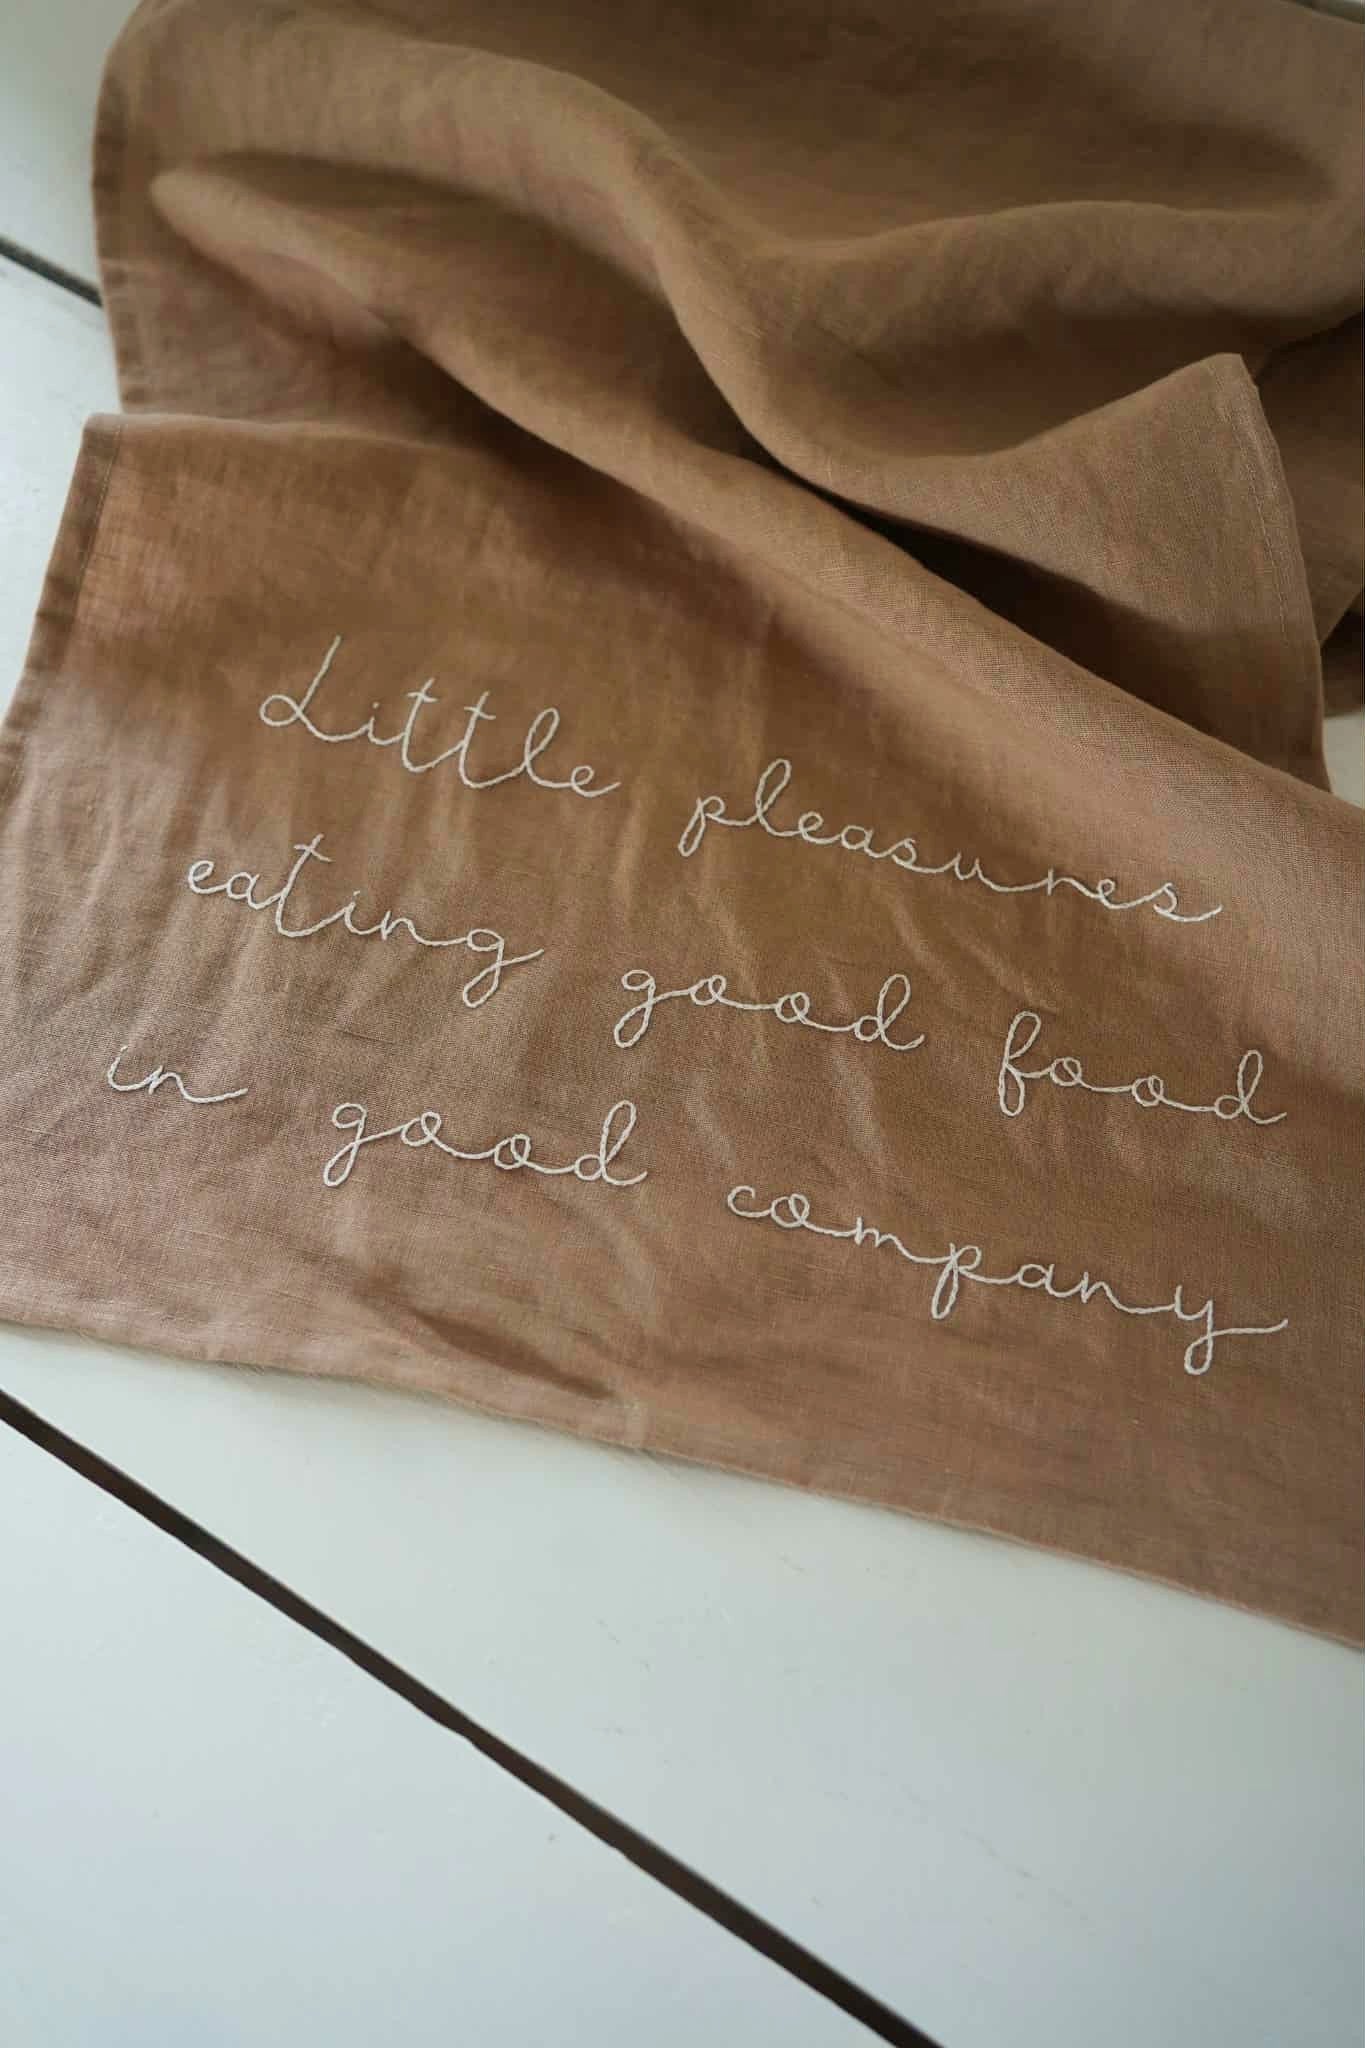 Little pleasures
eating good food
in good company